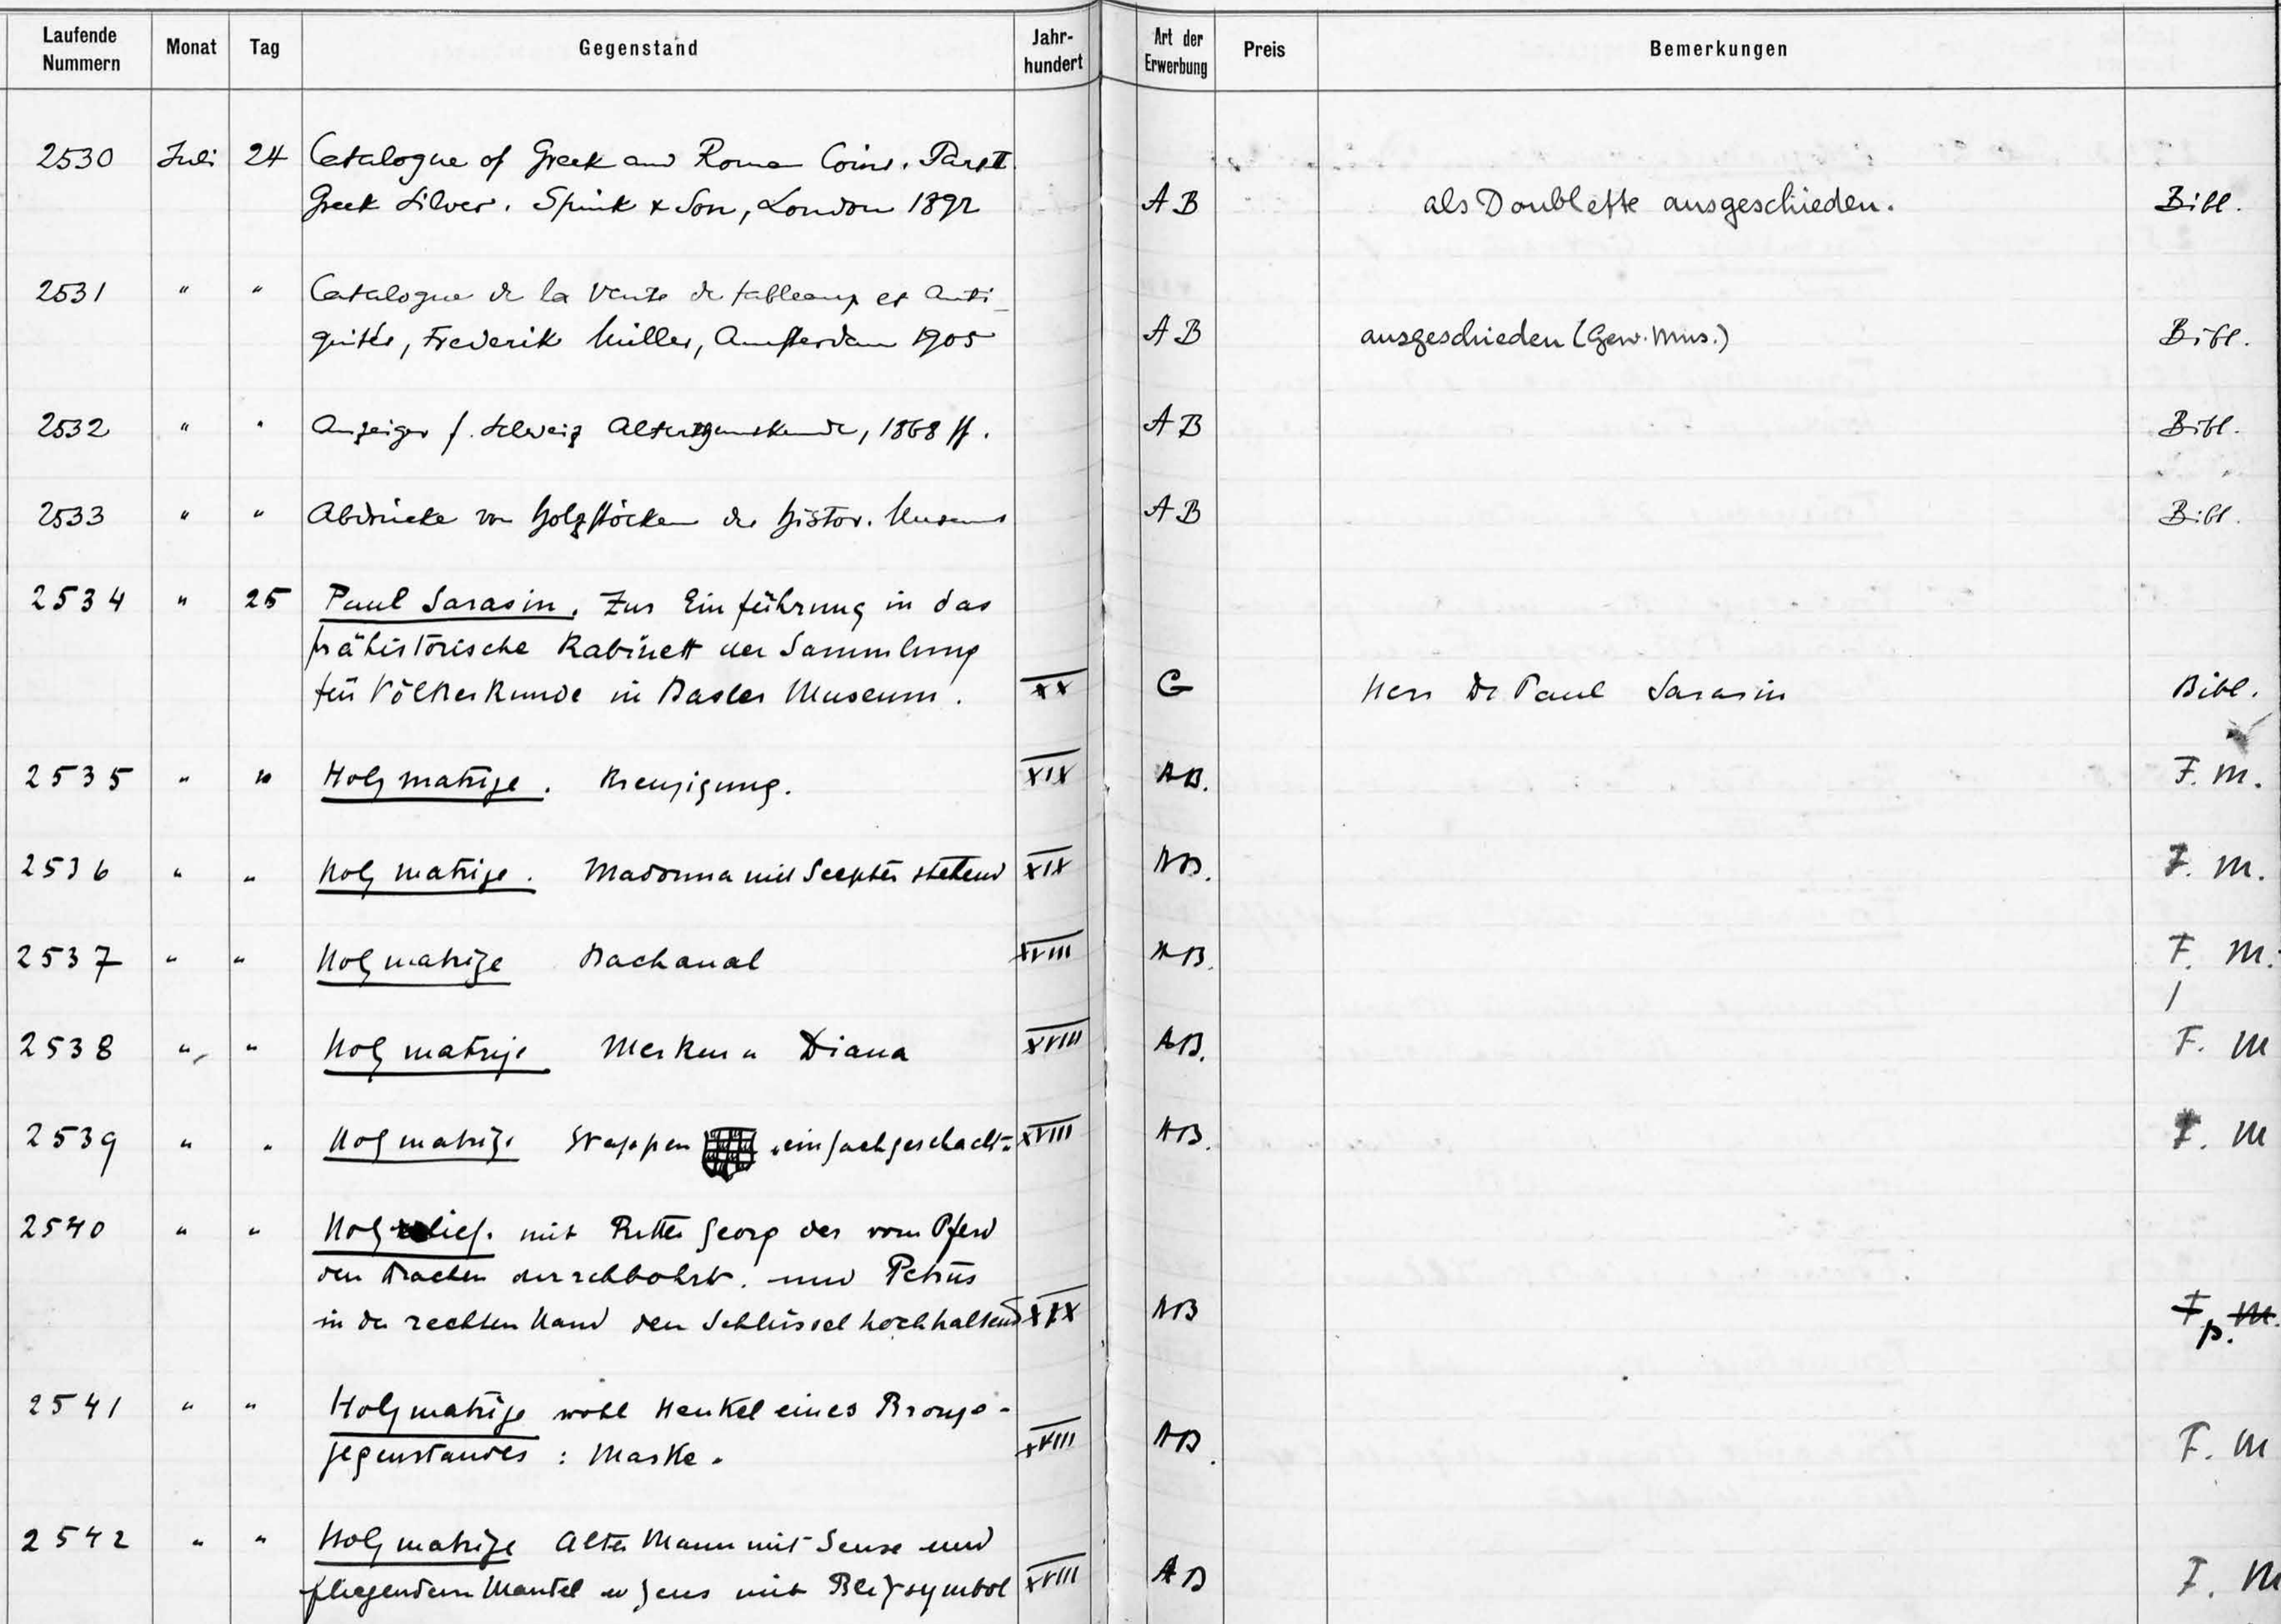 Laufende Nummern Monat Tag Gegenstand Jahr-hundert Art der Erwerbung Preis Bemerkungen
2530 Juli 24 Catalogue of Greek and Roman Coins. Part II.
Greek Silver. Spink & Son, London 1892 AB als Doublette ausgeschieden. Bibl.
2531 " " Catalogue de la Vente de tableaux et Anti-
quités, Frederik Müller, Amsterdam 1905 AB ausgeschieden (Gew. Mus.) Bibl.
2532 " " Anzeiger f. Schweiz Altertumskunde, 1868 ff. AB Bibl.
2533 " " Abdrücke von Holzstöcken des Histor. Museums AB Bibl.
2534 " 25 Paul Sarasin. Zur Einführung in das
prähistorische Kabinett der Sammlung
für Völkerkunde in Basler Museum. XX G Herr Dr Paul Sarasin Bibl.
2535 " " Holzmatrize. Kreuzigung. XIX AB. F. M.
2536 " " Holzmatrize. Madonna mit Scepter stehend XIX AB. F. M.
2537 " " Holzmatrize Bachanal XVIII AB. F. M.
2538 " " Holzmatrize Merkur u Diana XVIII AB. F. M
2539 " " Holzmatrize Wappen einfach geschacht XVIII AB. F. M
2540 " " Holzrelief. mit Ritter Georg der vom Pferd
den Drachen durchbohrt. und Petrus
in der rechten Hand den Schlüssel hochhaltend XIX AB F. M. p.
2541 " " Holzmatrize wohl Henkel eines Bronze-
gegenstandes : Maske. XVIII AB. F. M
2542 " " Holzmatrize Alter Mann mit Sense und
fliegendem Mantel u Zeus mit Blitzsymbol XVIII AB F. M